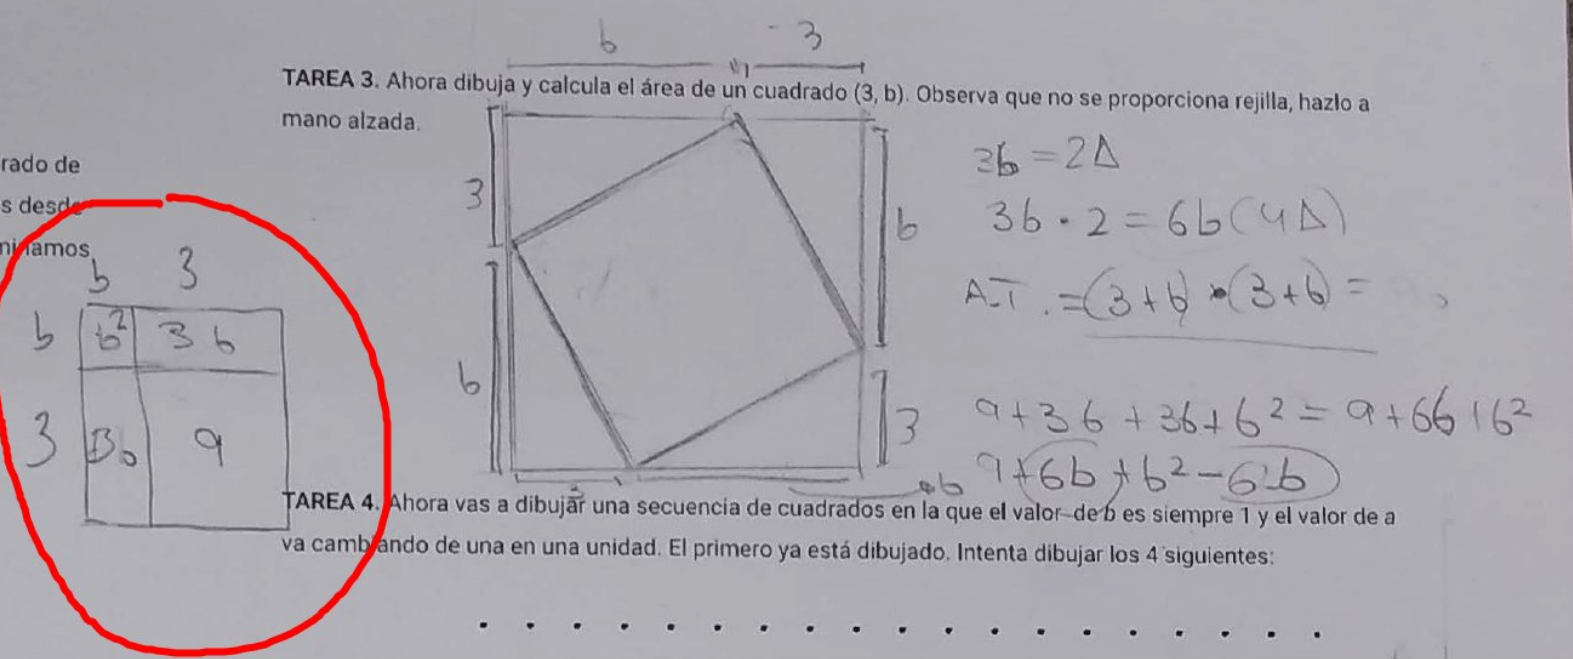 b 3
TAREA 3. Ahora dibuja y calcula el área de un cuadrado (3, b). Observa que no se proporciona rejilla, hazlo a
mano alzada.
rado de
s desde
b 3
b b² 3b
3 3b 9
3
b
b
3
b
3b = 2Δ
3b · 2 = 6b (4Δ)
A.T. = (3+b) · (3+b) =
9 + 3b + 3b + b² = 9 + 6b + b²
9 + 6b + b² - 6b
TAREA 4. Ahora vas a dibujar una secuencia de cuadrados en la que el valor de b es siempre 1 y el valor de a
va cambiando de una en una unidad. El primero ya está dibujado. Intenta dibujar los 4 siguientes: